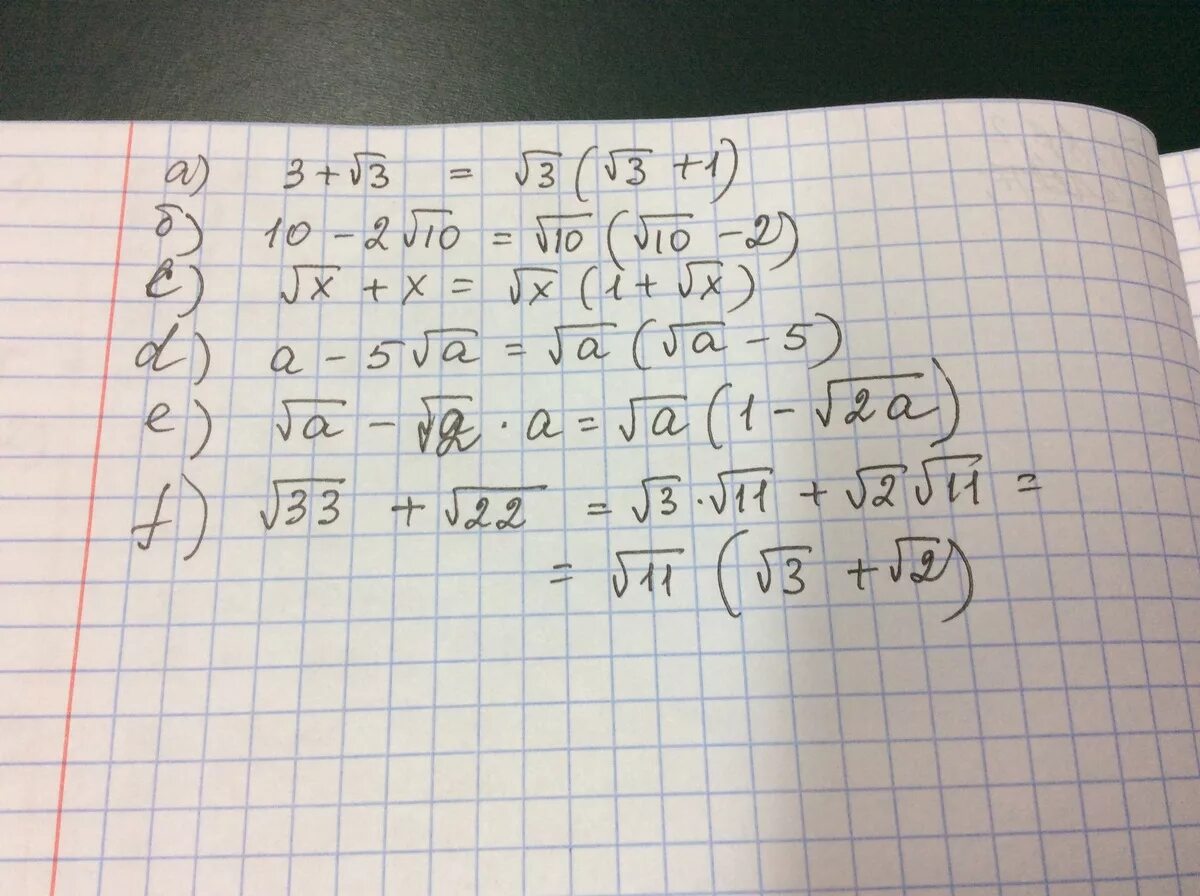 а) 3 + √3 = √3 (√3 + 1)
б) 10 - 2√10 = √10 (√10 - 2)
c) √x + x = √x (1 + √x)
d) a - 5√a = √a (√a - 5)
e) √a - √2 · a = √a (1 - √2a)
f) √33 + √22 = √3 · √11 + √2 √11 =
= √11 (√3 + √2)